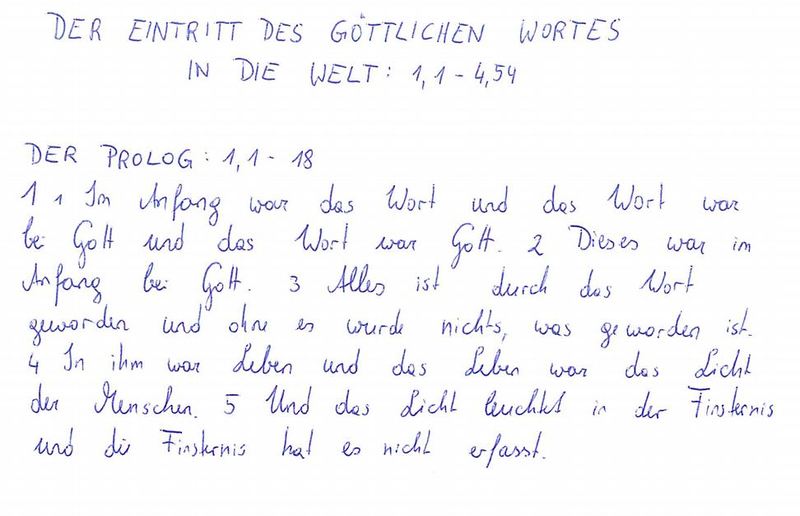 DER EINTRITT DES GÖTTLICHEN WORTES
IN DIE WELT: 1,1 - 4,54
DER PROLOG: 1,1 - 18
1 1 Im Anfang war das Wort und das Wort war
bei Gott und das Wort war Gott. 2 Dieses war im
Anfang bei Gott. 3 Alles ist durch das Wort
geworden und ohne es wurde nichts, was geworden ist.
4 In ihm war Leben und das Leben war das Licht
der Menschen. 5 Und das Licht leuchtet in der Finsternis
und die Finsternis hat es nicht erfasst.